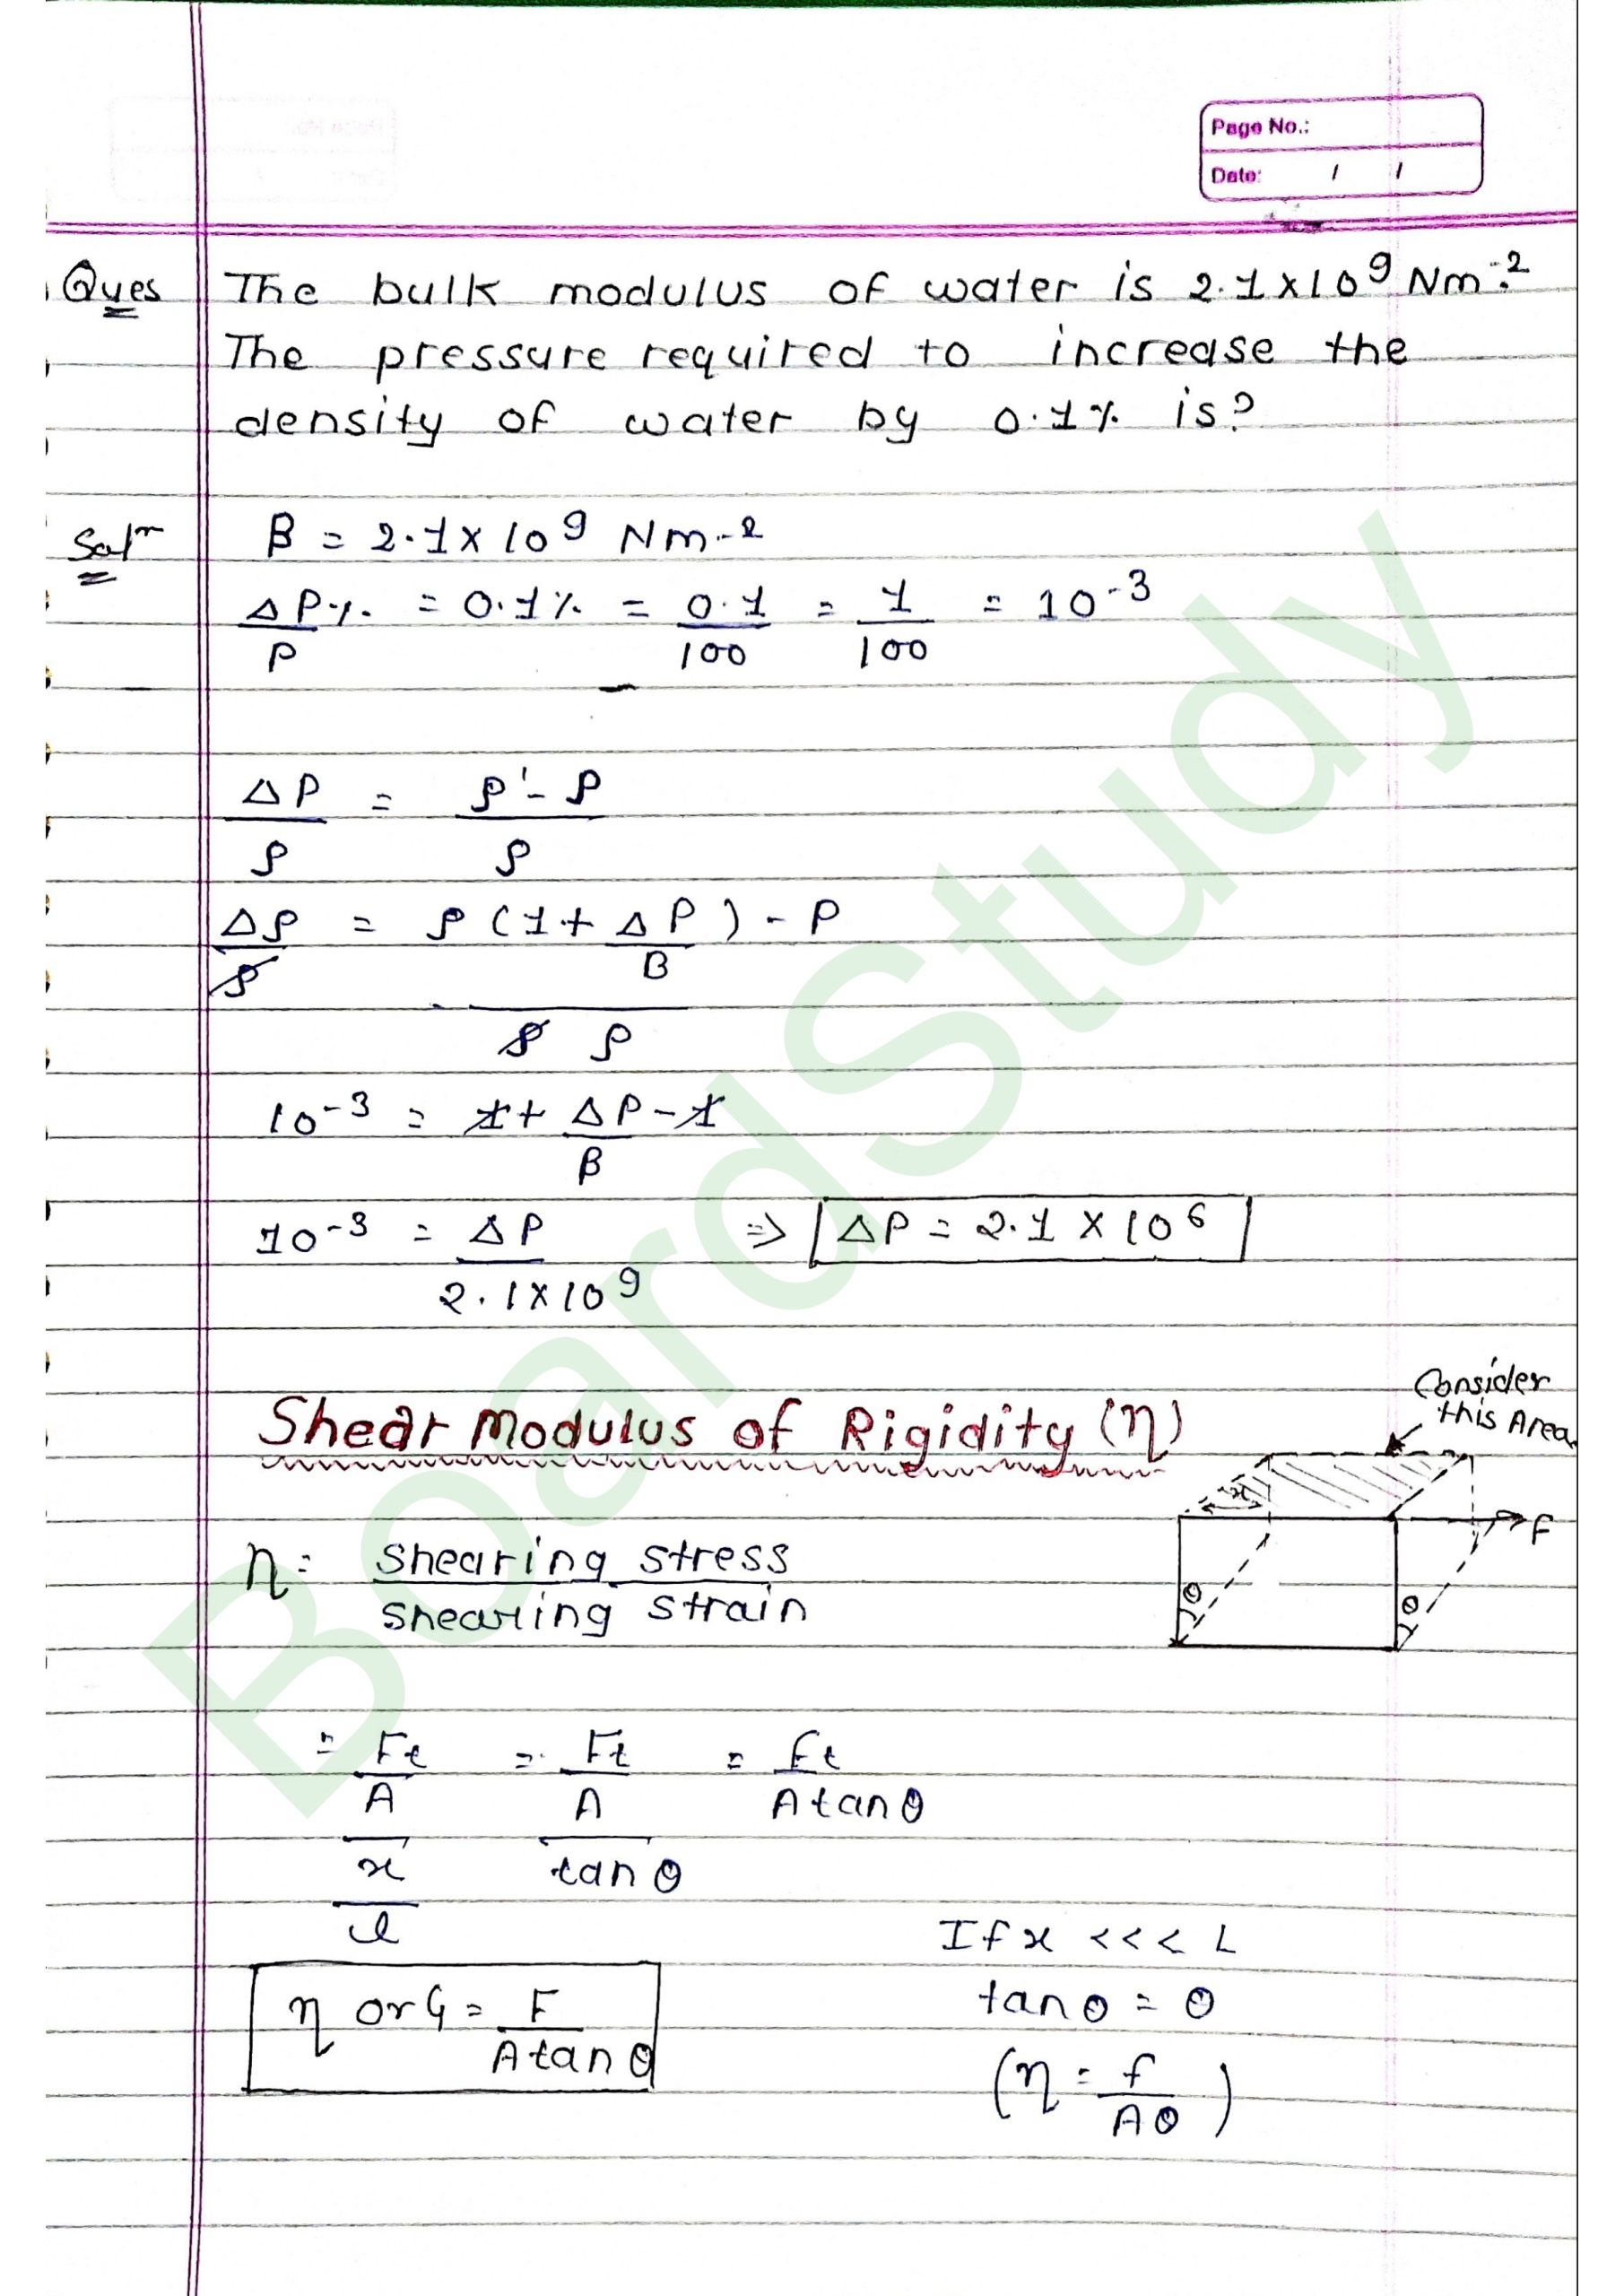 Page No.:
Date: / /
Ques The bulk modulus of water is 2.1x10⁹ Nm⁻².
The pressure required to increase the
density of water by 0.1% is?
Solⁿ B = 2.1x10⁹ Nm-2
ΔP/P % = 0.1% = 0.1/100 = 1/100 = 10⁻³
ΔP/ρ = ρ'-ρ/ρ
Δρ/ρ = ρ(1+ΔP/B)-P / ρ ρ
10⁻³ = 1+ΔP/β-1
10⁻³ = ΔP/2.1x10⁹ => ΔP = 2.1 x 10⁶
Consider
this Area
Shear Modulus of Rigidity (η)
x
F
η = Shearing stress
shearing strain
θ θ
= Ft/A / x/l = Ft/A / tanθ = Ft/Atanθ
If x <<< L
η or G = F/Atanθ
tanθ = θ
(η = f/Aθ)
BoardStudy